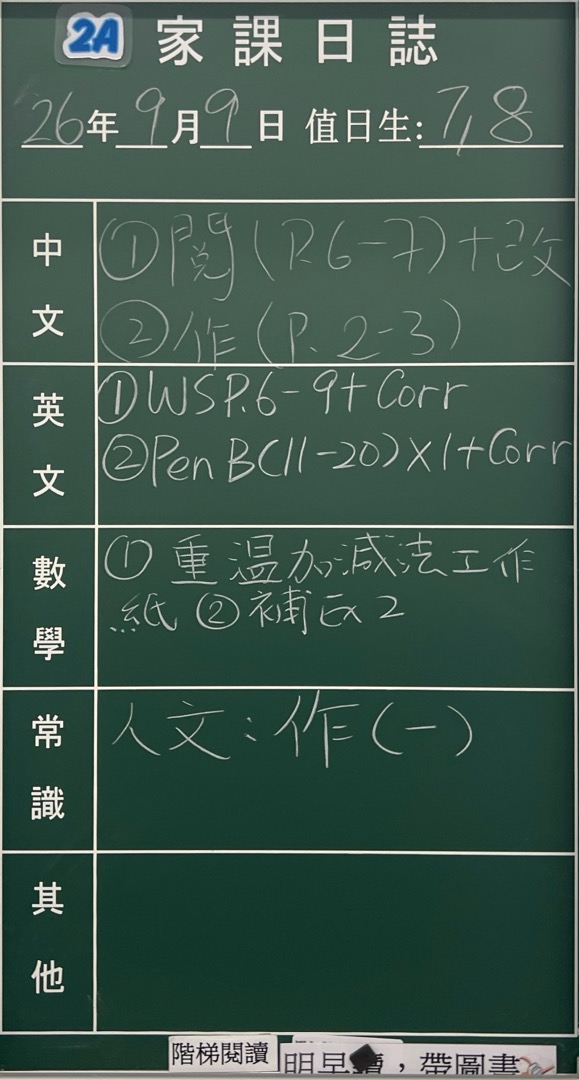 2A 家課日誌
26年9月9日 值日生:7,8
中文
①閱(P.6-7)+改
②作(P.2-3)
英文
①WSP.6-9+Corr
②Pen B(11-20)×1+Corr
數學
①重溫加減法工作
紙②補Ex2
常識
人文:作(一)
其他
階梯閱讀
明早讀,帶圖書